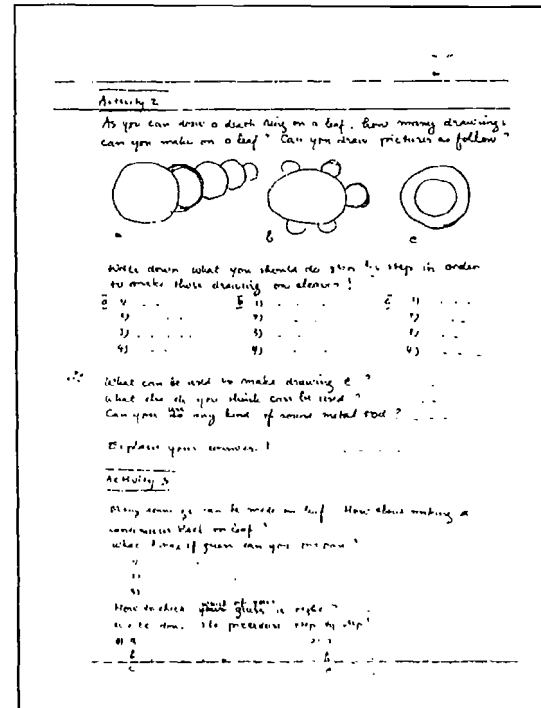 Activity 2
As you can draw a death ring on a leaf, how many drawings
can you make on a leaf? Can you draw pictures as follow?
a b c
Write down what you should do step by step in order
to make those drawing on leaves!
a 1) . . b 1) . . . . c 1) . . . .
2) . . . . 2) . . . 2) . . .
3) . . . . . 3) . . . . 3) . . .
4) . . . . 4) . . . . 4) . . .
What can be used to make drawing c?
What else do you think can be used?
Can you use any kind of round metal rod? . . . .
Explain your answer! . . . . .
Activity 3
Many can be made on leaf. How about making a
on leaf?
What kind of guess can you
1)
2)
3)
How to check which of your guess is right?
Write down the procedure step by step!
a
b b
c